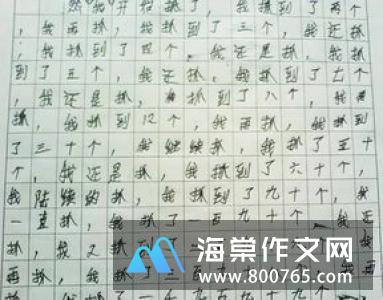 然我开始抓了,我抓到了两个
,我再抓,我抓到了三个,我还抓
,我抓到了四个,我还是抓,我抓
到了五个,我还抓,我抓到了七个
,我还是抓,我抓到了八个,我
抓,我抓到12个,我再抓,我抓到
了三十个,我继续抓,我抓了五十
个,我还是抓,我抓到了六十个,
我陆续的抓,我抓到了九十个,我
一直抓,我抓了一百九十个,我还
抓,我又抓到了
再抓,我抓了三百
海棠作文网
www.800765.com